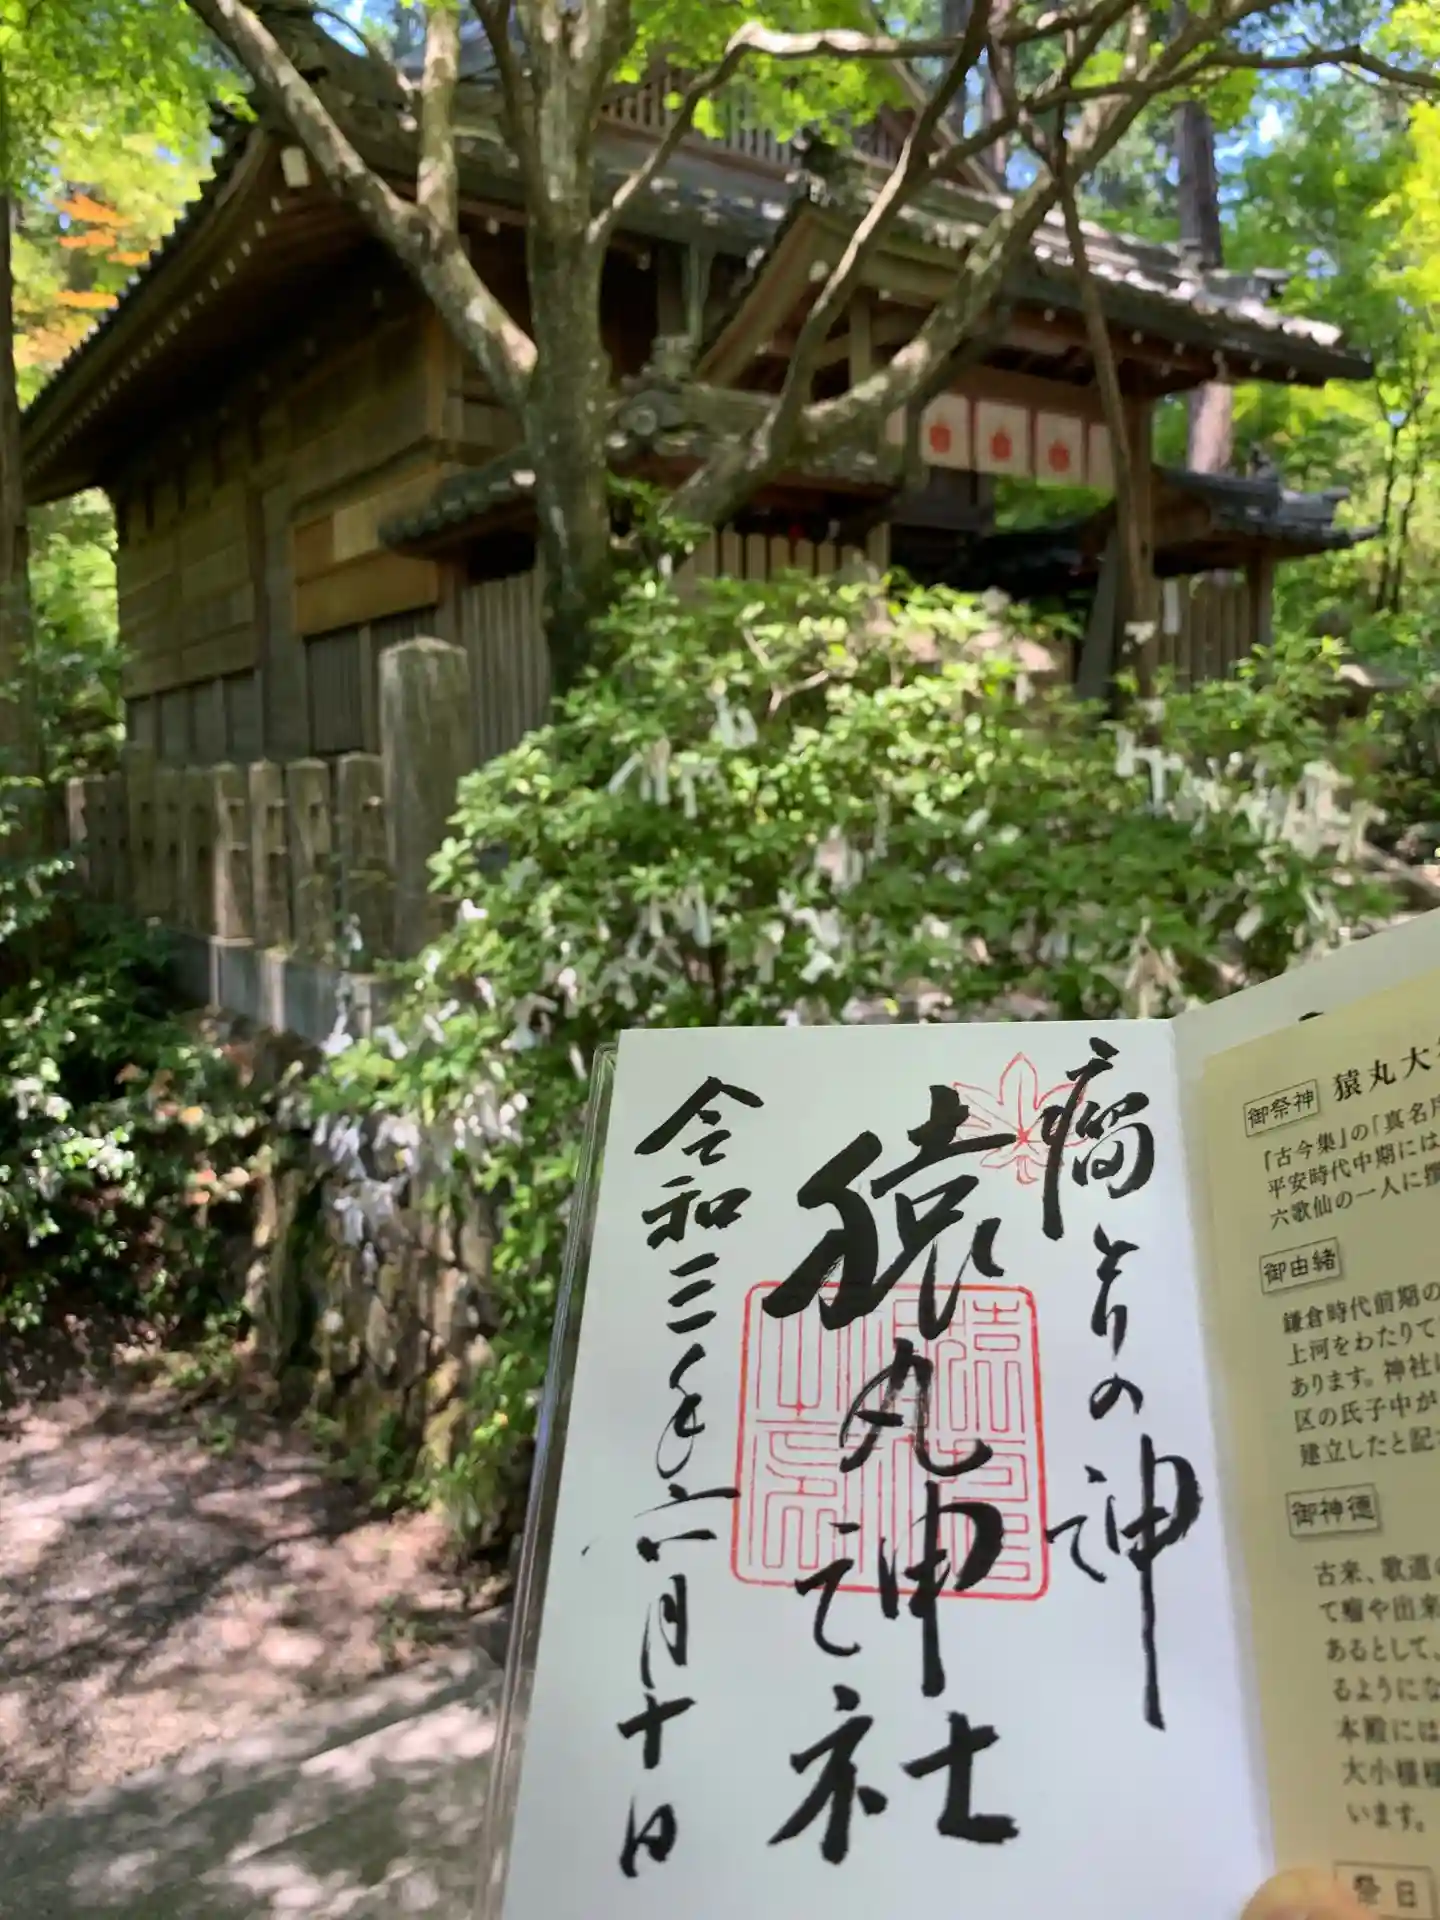 瘤とりの神
猿丸神社
令和三年六月十日
御祭神 猿丸大
「古今集」の「真名序
平安時代中期には
六歌仙の一人に撰
御由緒
鎌倉時代前期の
上河をわたりて
あります。神社は
区の氏子中が
建立したと記
御神徳
古来、歌道の
て瘤や出来
あるとして、
るようにな
本殿には
大小様様
います。
祭日